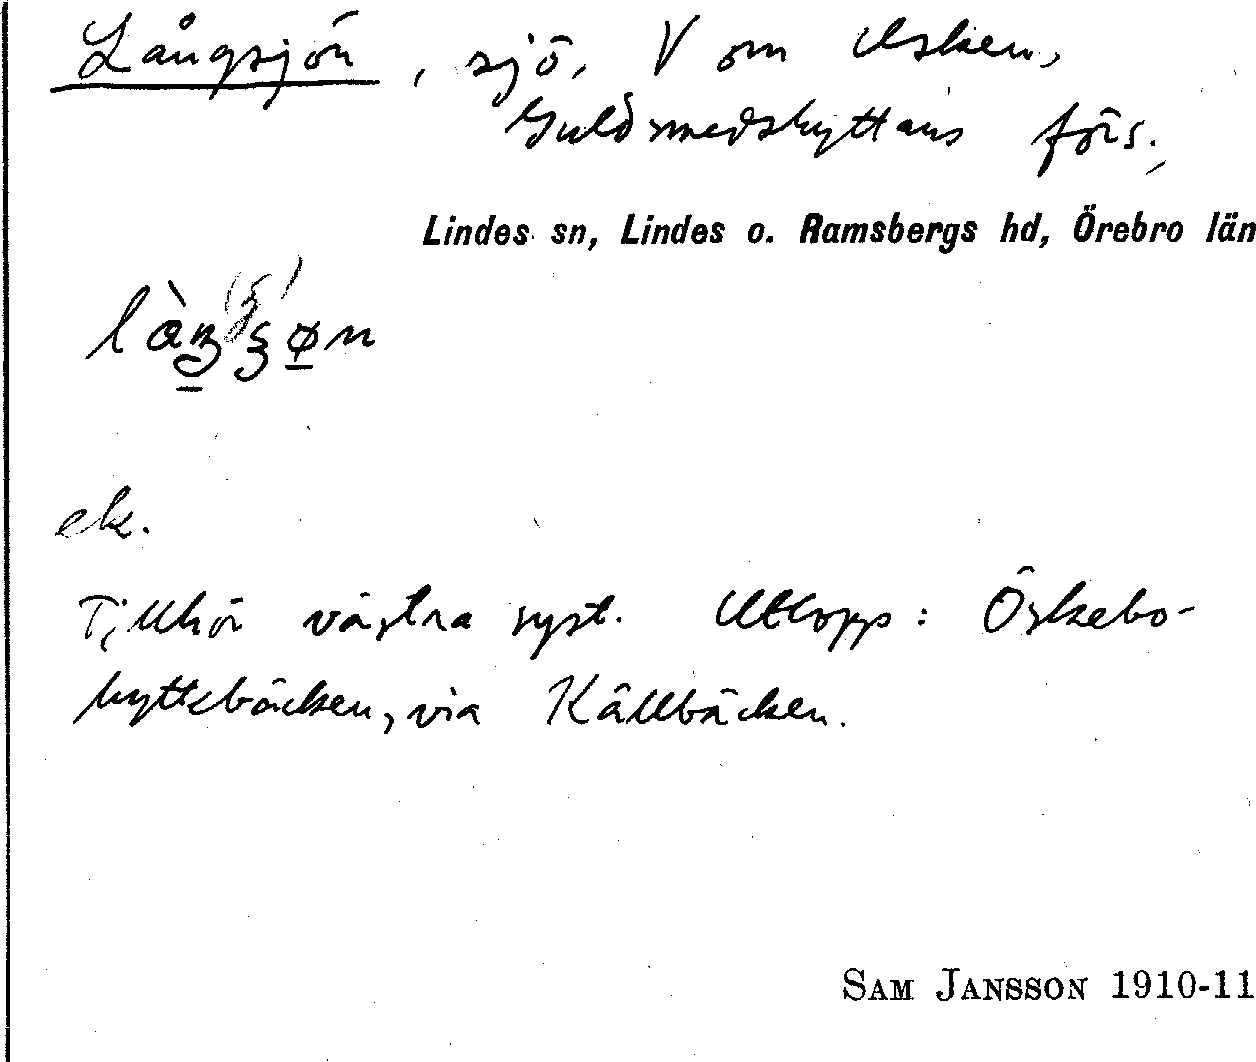 Långsjön, sjö, V om Usken,
Guldsmedshyttans förs.,
Lindes sn, Lindes o. Ramsbergs hd, Örebro län
ek.
Tillhör västra syst. Utlopp: Öskebo-
hyttebäcken, via Källbäcken.
SAM JANSSON 1910-11